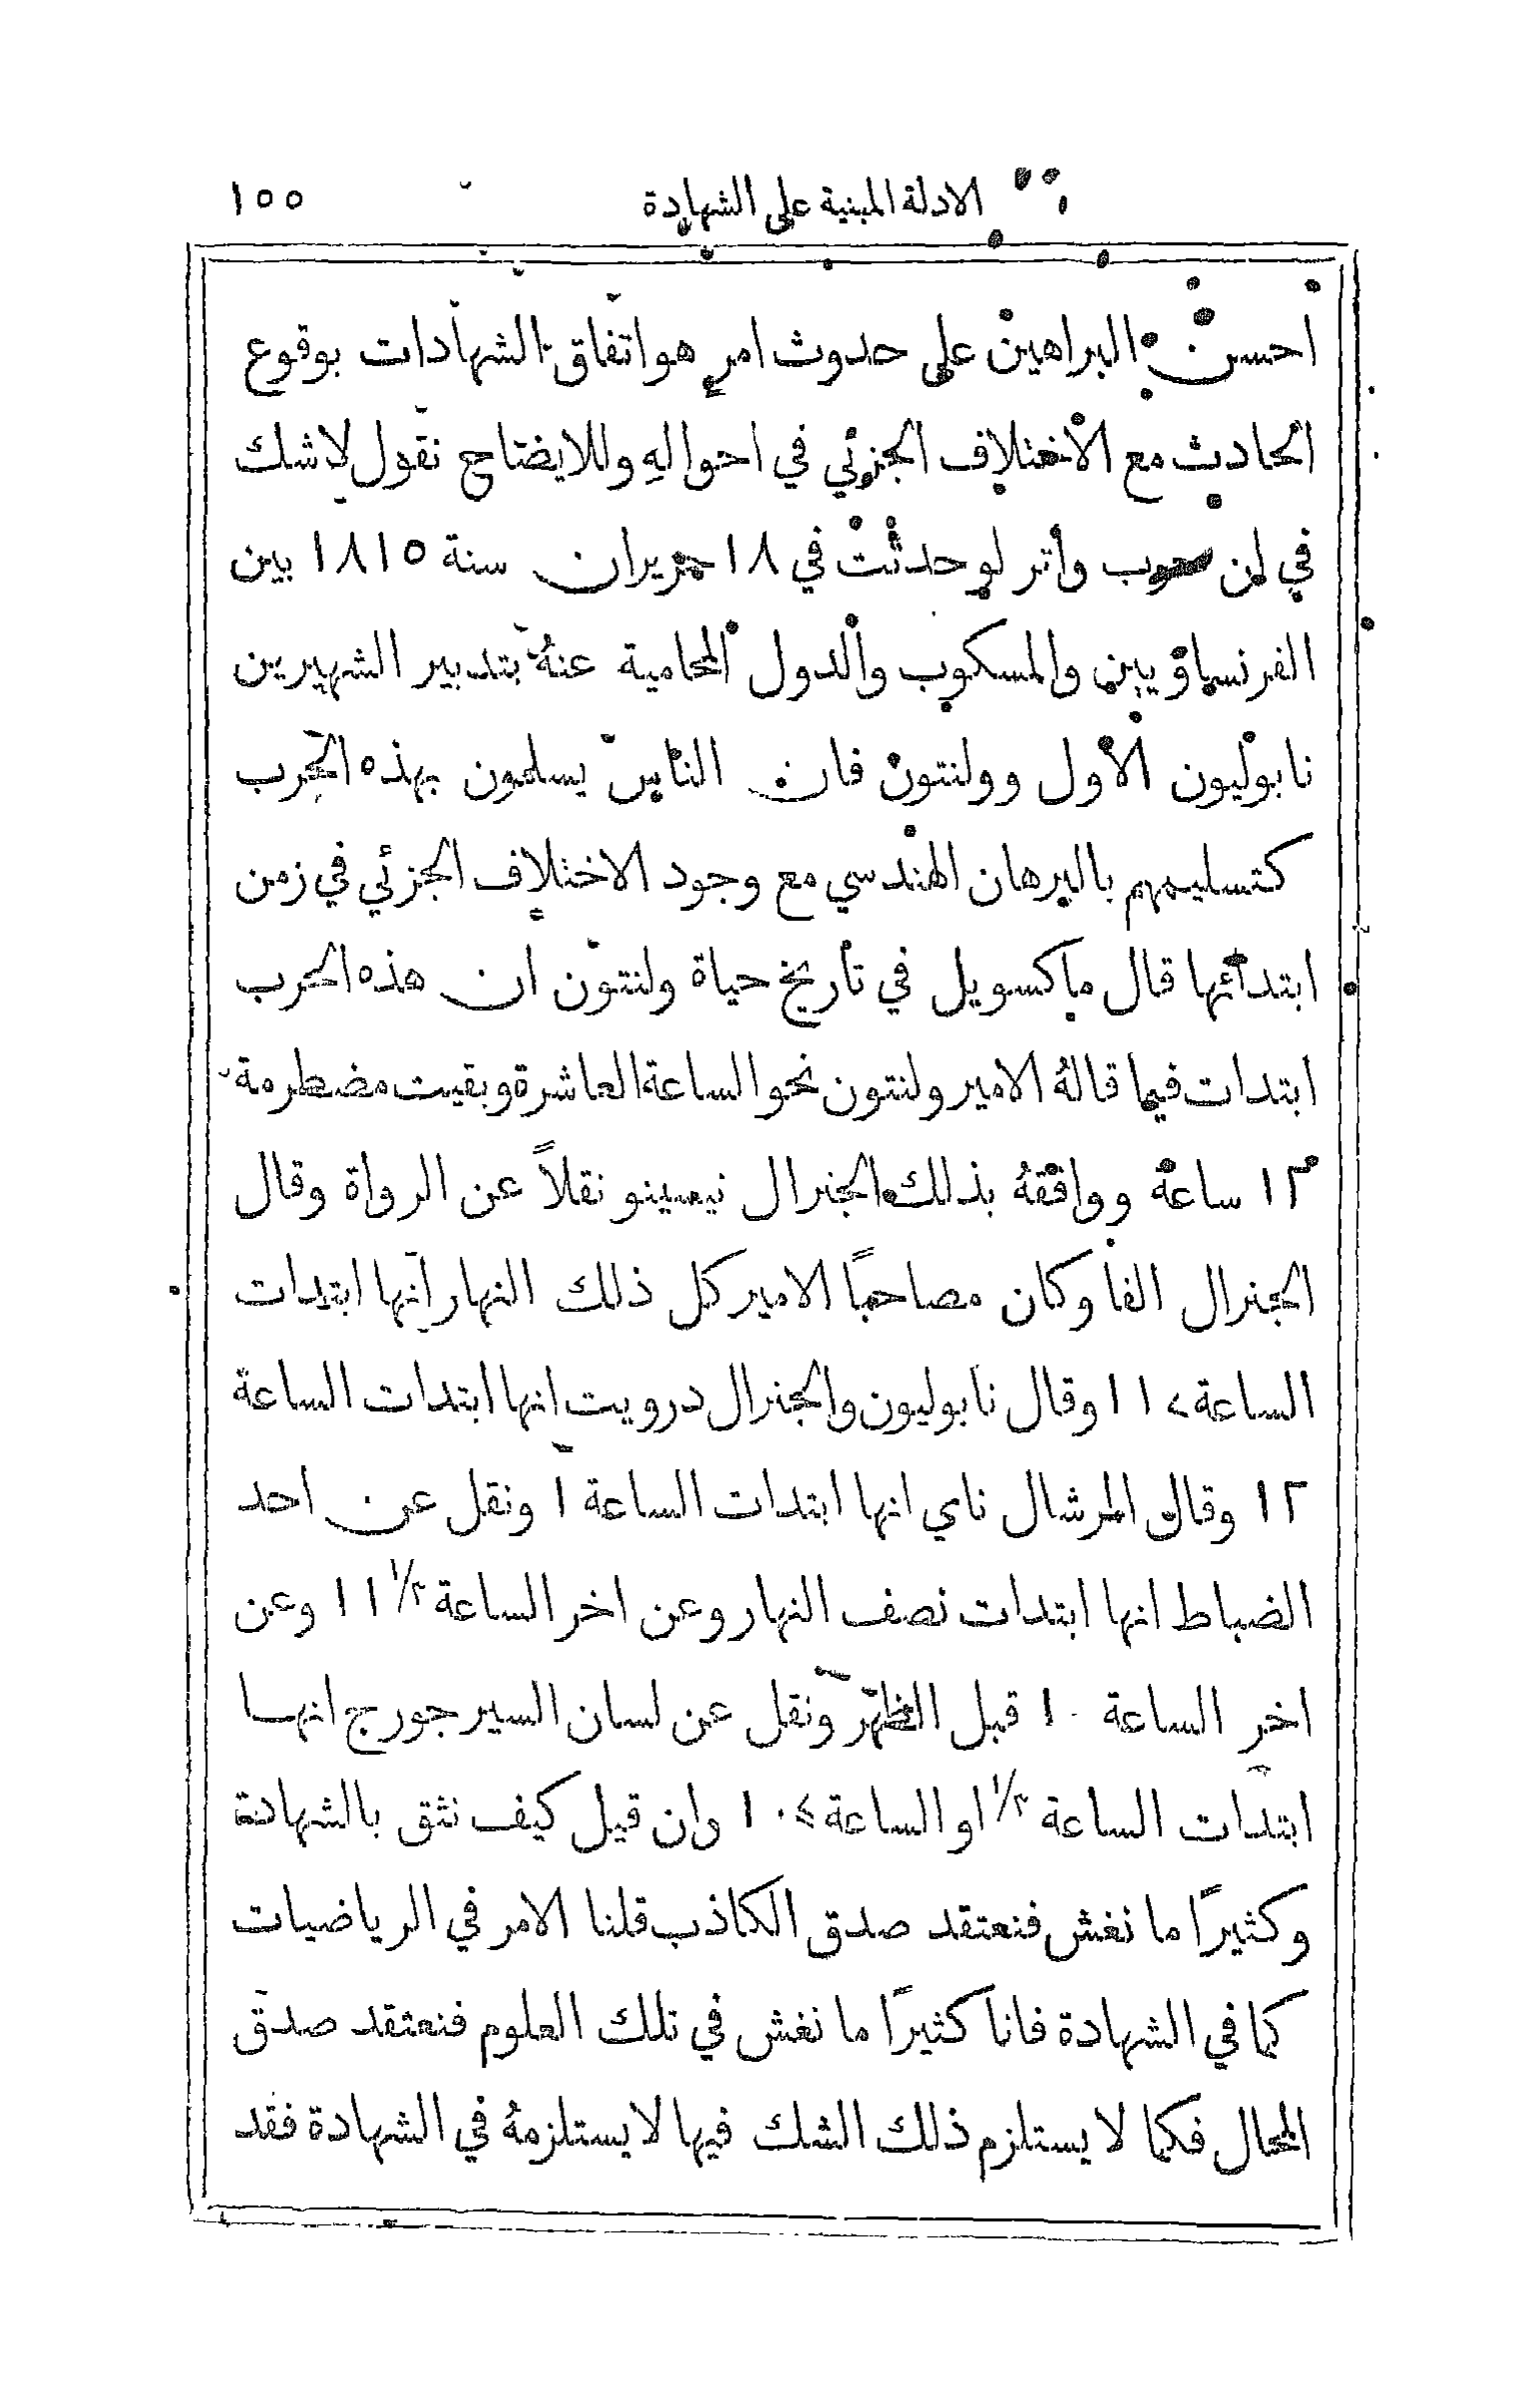 الادلة المبنية على الشهادة ١٥٥
احسن البراهين على حدوث امرٍ هو اتفاق الشهادات بوقوع
الحادث مع الاختلاف الجزئي في احوالهِ وللايضاح نقول لا شك
في ان حرب واتر لو حدثت في ١٨ حزيران سنة ١٨١٥ بين
الفرنساويين والمسكوب والدول المحامية عنهُ بتدبير الشهيرين
نابوليون الاول وولنتون فان الناس يسلمون بهذه الحرب
كتسليمهم بالبرهان الهندسي مع وجود الاختلاف الجزئي في زمن
ابتدائها قال ماكسويل في تاريخ حياة ولنتون ان هذه الحرب
ابتدات فيما قالهُ الامير ولنتون نحو الساعة العاشرة وبقيت مضطرمة
١٢ ساعة ووافقهُ بذلك الجنرال نقلاً عن الرواة وقال
الجنرال الفا وكان مصاحبًا الامير كل ذلك النهار انها ابتدات
الساعة ١١ وقال نابوليون والجنرال درويت انها ابتدات الساعة
١٢ وقال المرشال ناي انها ابتدات الساعة ١ ونقل عن احد
الضباط انها ابتدات نصف النهار وعن اخر الساعة ١١ ١/٢ وعن
اخر الساعة ١٠ قبل الظهر ونقل عن لسان السير جورج انها
ابتدات الساعة ١/٢ او الساعة ١٠ وان قيل كيف نثق بالشهادة
وكثيرًا ما نغش فنعتقد صدق الكاذب قلنا الامر في الرياضيات
كما في الشهادة فانا كثيرًا ما نغش في تلك العلوم فنعتقد صدق
المحال فكما لا يستلزم ذلك الشك فيها لا يستلزمهُ في الشهادة فقد